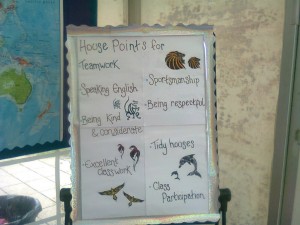 House Points for
Teamwork
- Sportsmanship
- Speaking English
- Being respectful
- Being Kind
& considerate
- Tidy houses
- Excellent
classwork
- Class
Participation